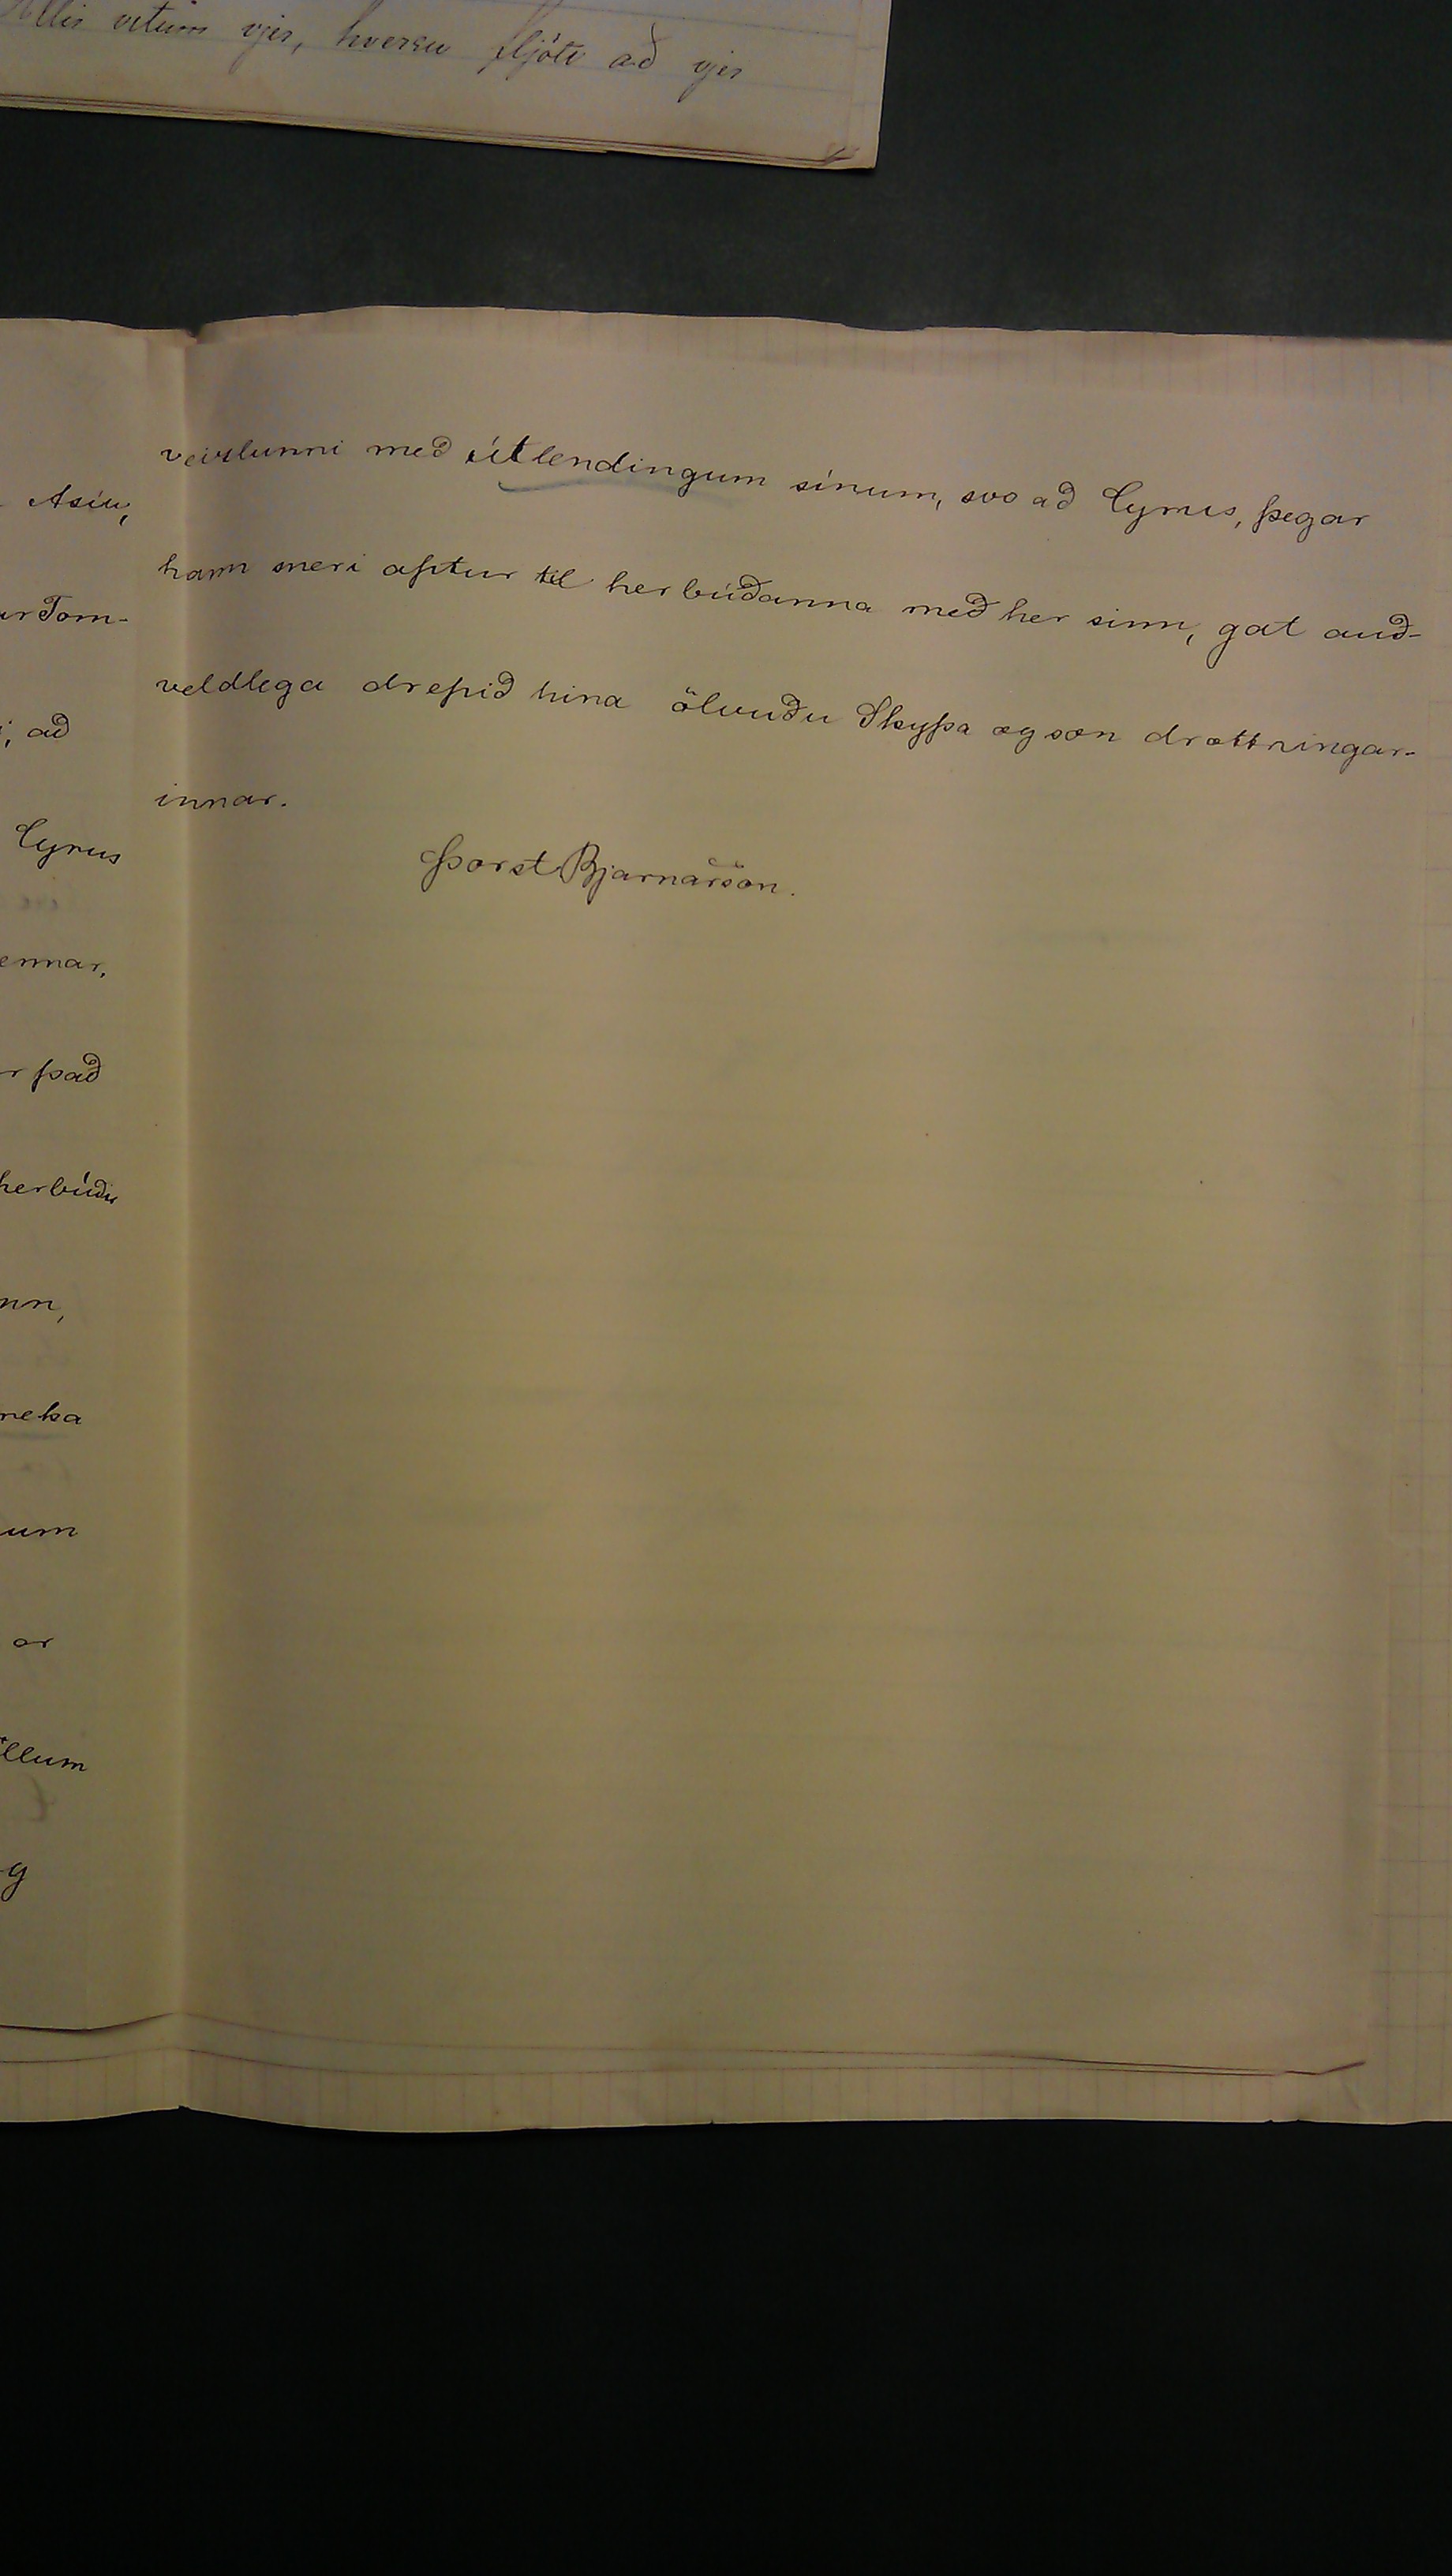 Allir vitum vjer, hversu fljótt að vjer
Asíu,
ur Tom-
, að
Cyrus
ennar,
r það
herbúðu
nn,
neka
um
or
öllum
g
veizlunni með útlendingum sínum, svo að Cyrus, þegar
hann sneri aptur til herbúðanna með her sinn, gat auð-
veldlega drepið hina ölvuðu Skyþa og son drottningar-
innar.
Þorst Bjarnarson.